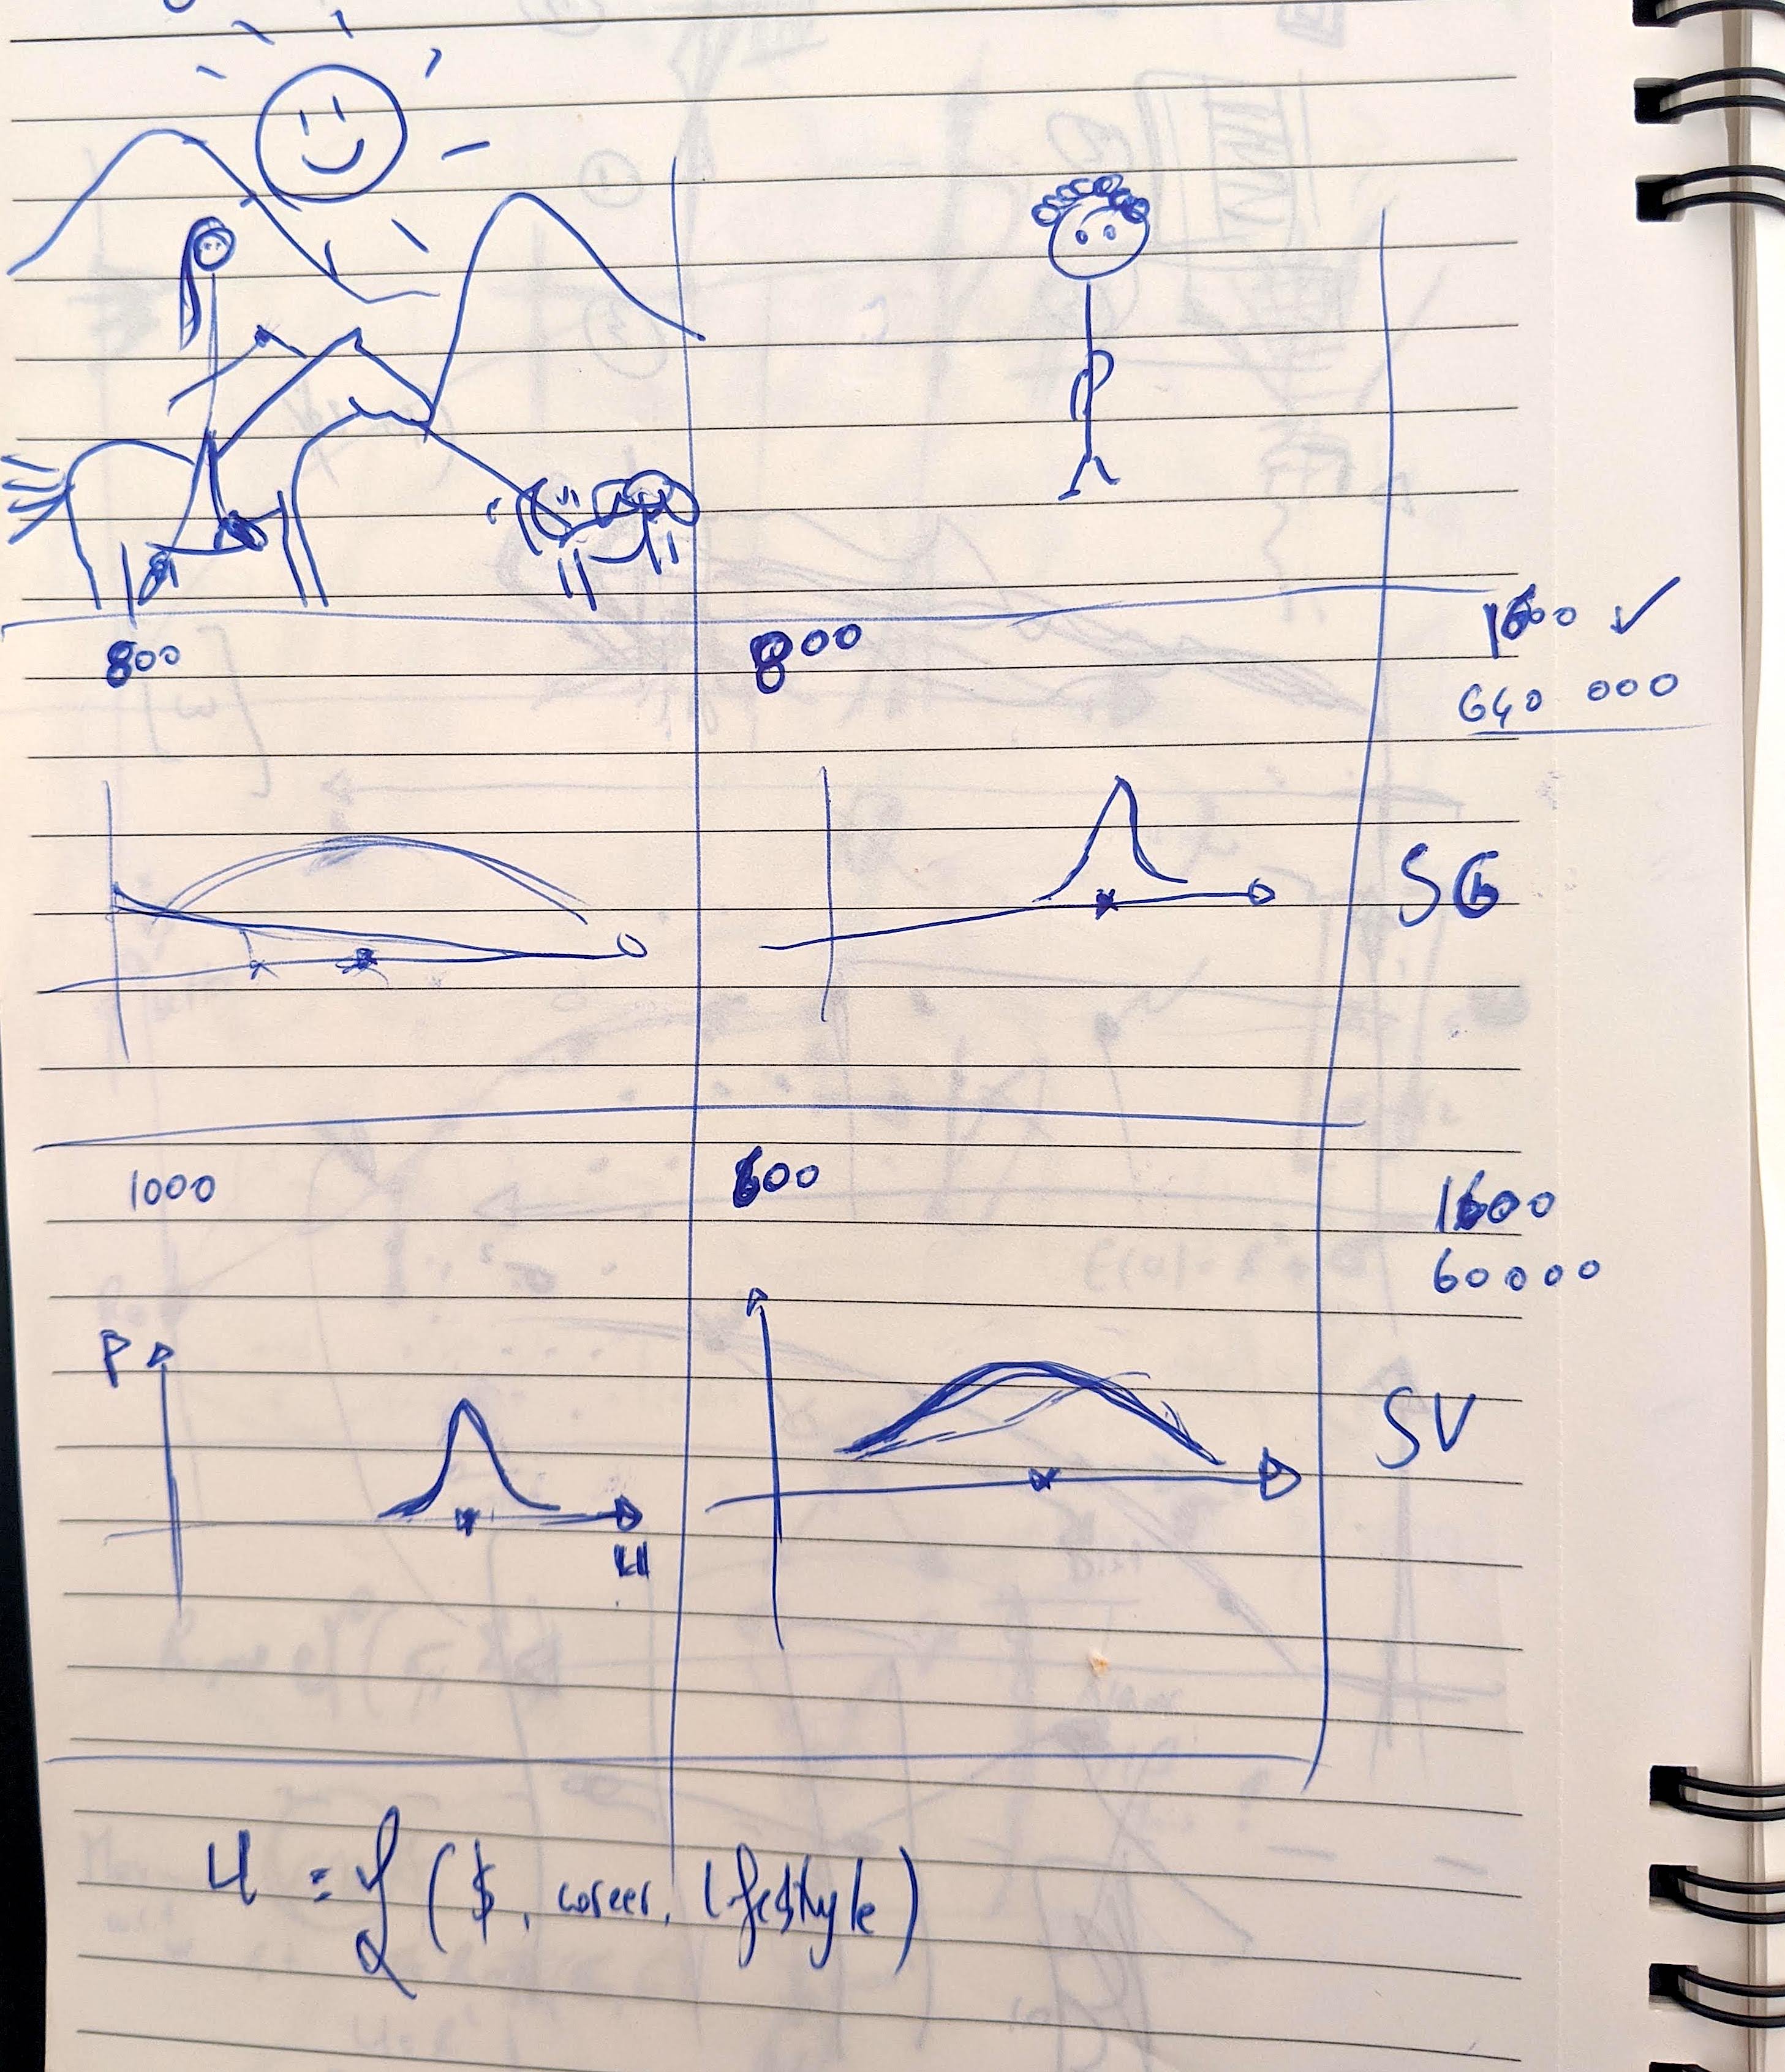 800 800 1600 ✓
640 000
SG
1000 600 1600
60000
P
SV
U
U = f ($, career, lifestyle)